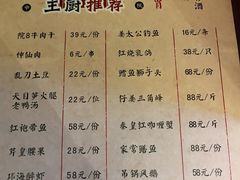 主厨推荐
酒
院8牛肉干 39元/份
神仙肉 6元/串
乱刀土豆 22元/份
天目笋火腿老鸭汤 58元/份
红袍带鱼 58元/份
芹皇腰果 28元/份
58元/份
姜太公钓鱼 16元/条
红烧乳鸽 38元/只
鳕鱼狮子头 68元/份
88元/份
秦皇红咖喱蟹 88元/份
家常膳鱼 58元/份
吊锅风鹅 58元/份